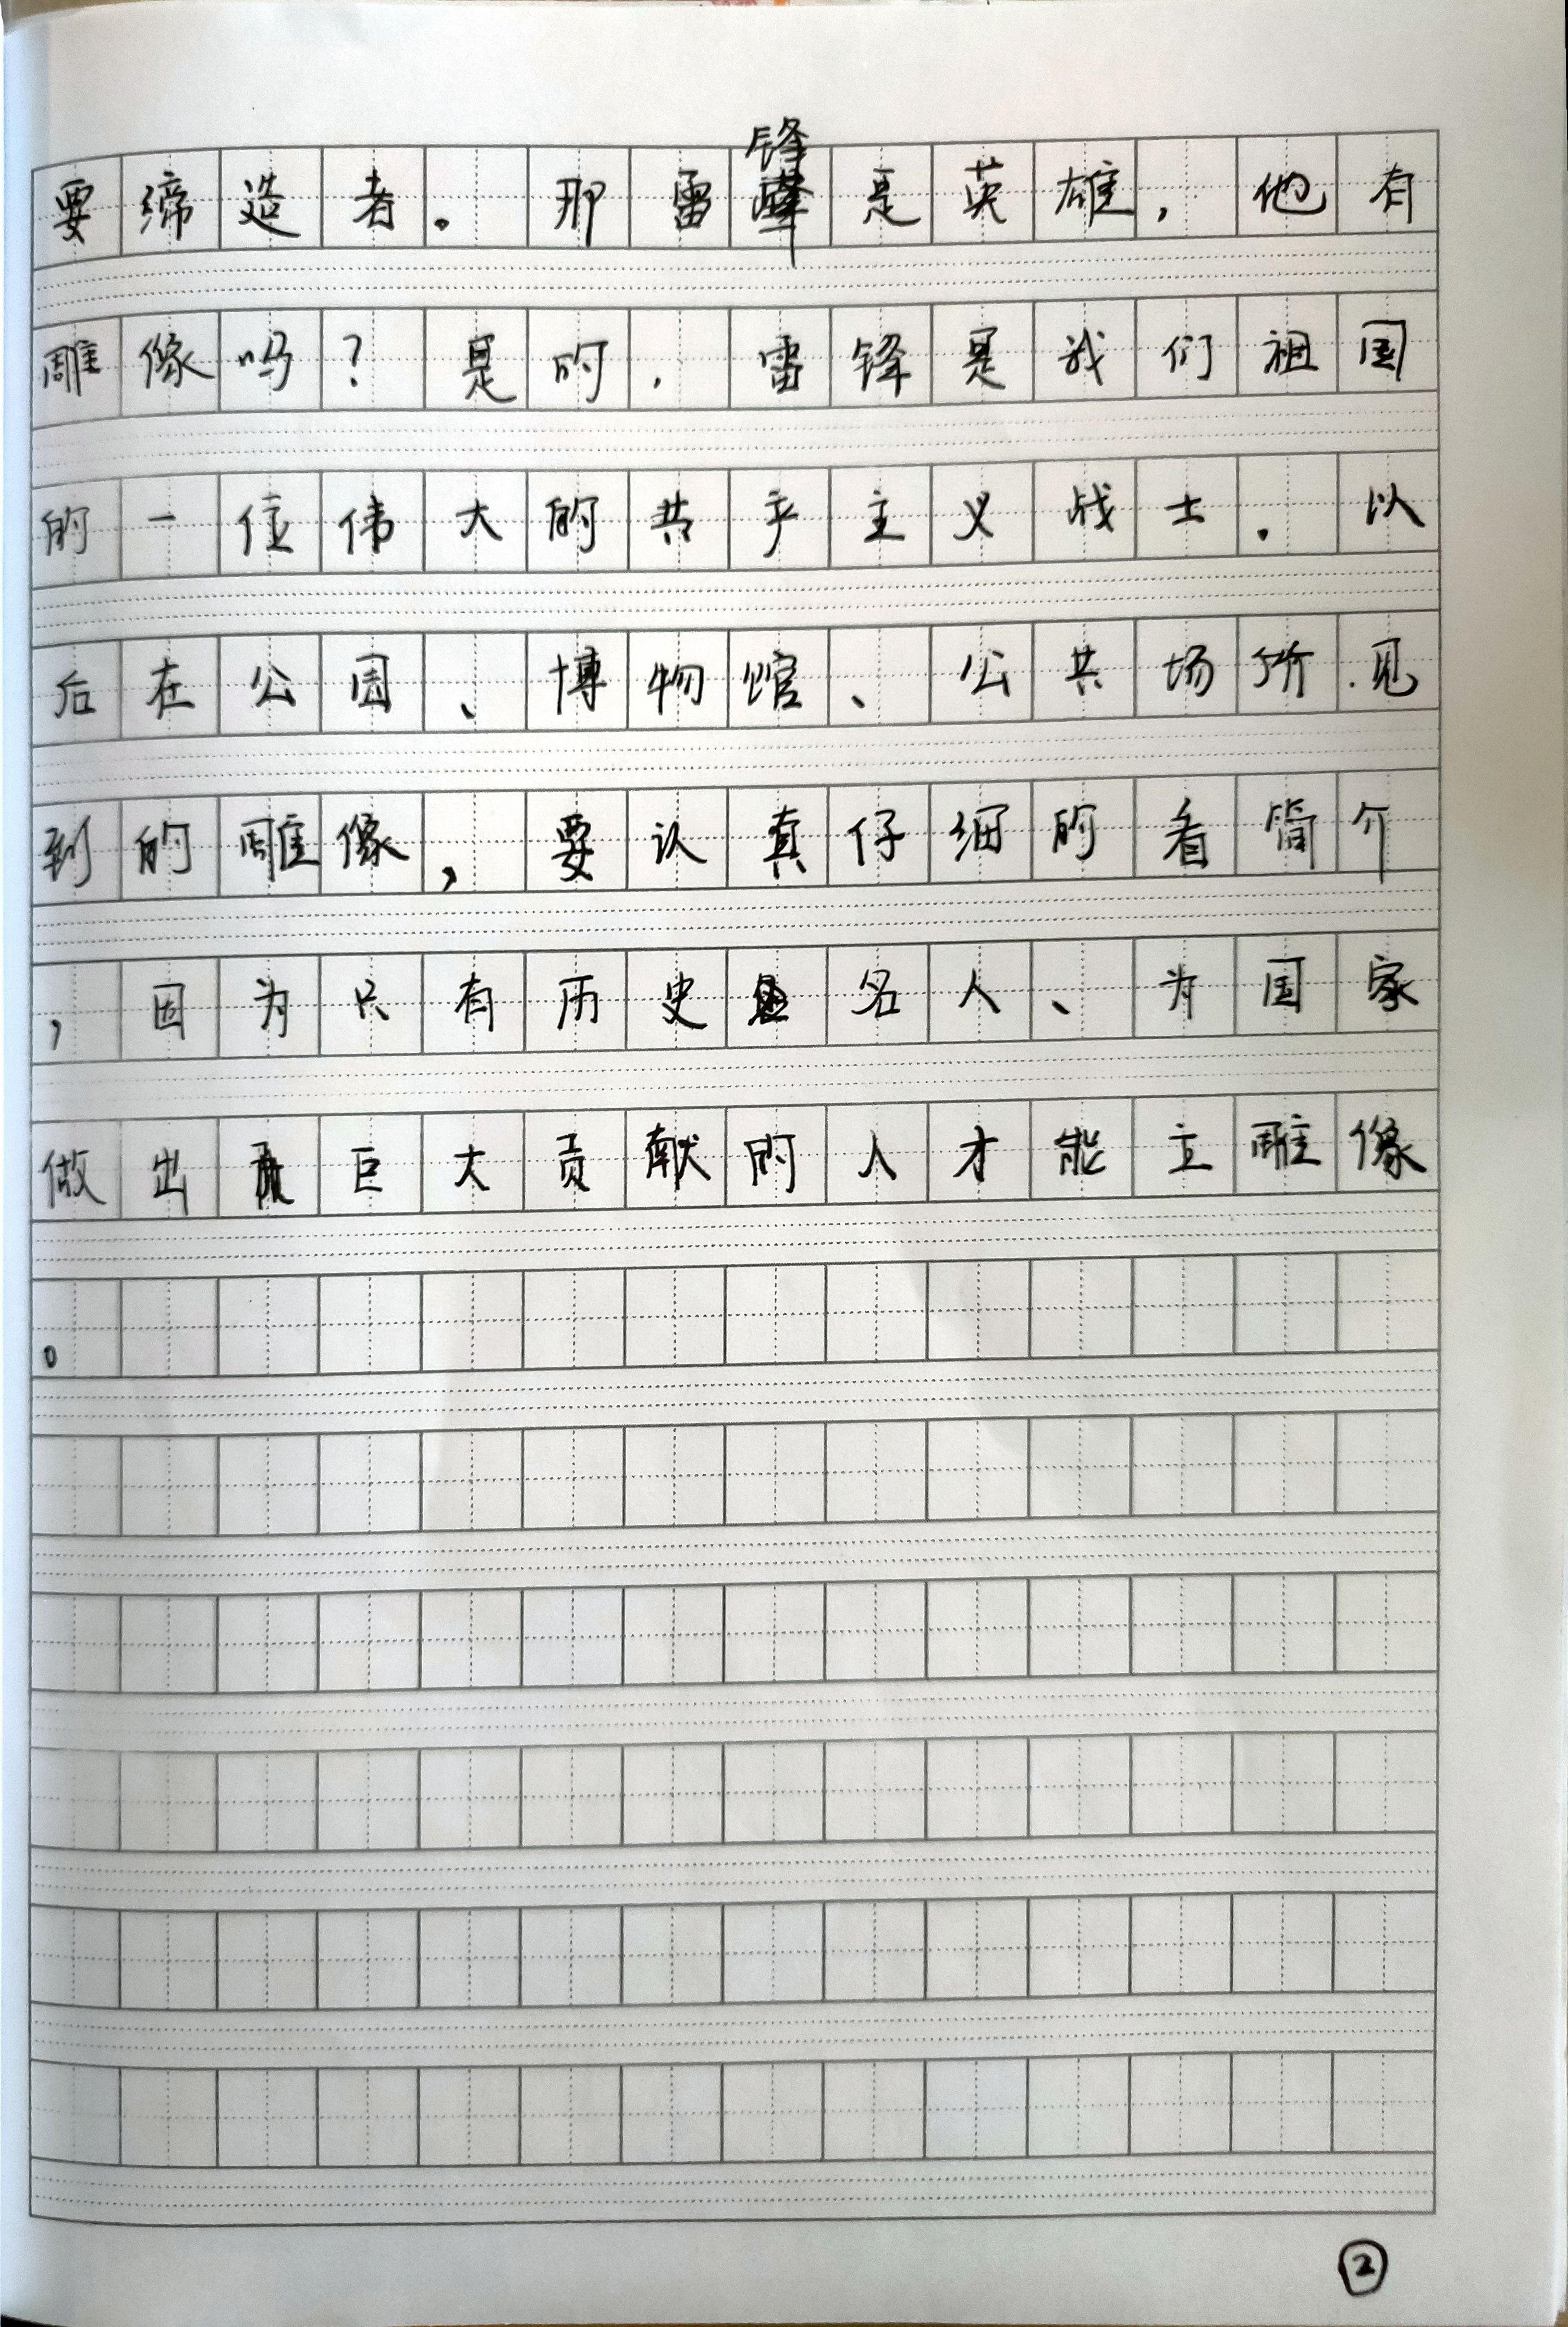 要缔造者。那雷锋是英雄，他有
雕像吗？是的，雷锋是我们祖国
的一位伟大的共产主义战士．以
后在公园、博物馆、公共场所．见
到的雕像，要认真仔细的看简介
，因为只有历史名人、为国家
做出巨大贡献的人才能立雕像
。
②